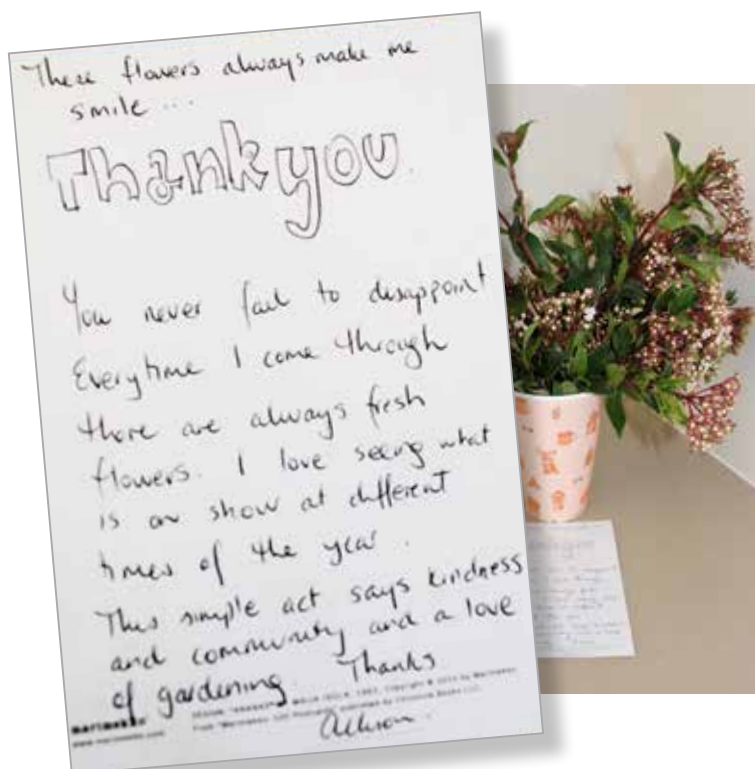 These flowers always make me
smile ...
Thankyou
You never fail to disappoint
Everytime I come through
there are always fresh
flowers. I love seeing what
is on show at different
times of the year.
This simple act says kindness
and community and a love
of gardening. Thanks
marimekko
www.marimekko.com